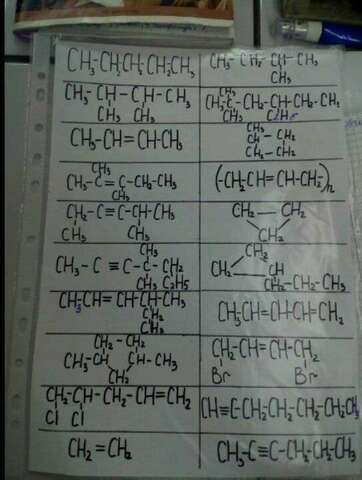 CH₃-CH₂CH₂CH₂CH₃
CH₃-CH₂-CH-CH₃
CH₃
CH₃-CH-CH-CH₃
CH₃ CH₃
CH₃
CH₃-C-CH₂-CH-CH₂-CH₃
CH₃ C₂H₅
CH₃-CH=CH-CH₃
CH₃
CH-CH₂
CH₂-CH₂
CH₃
CH₃-C=C-CH₂-CH₃
CH₃
(-CH₂CH=CH-CH₂-)n
CH₂-C≡C-CH-CH₃
CH₃ CH₃
CH₂-CH₂
CH₂
CH₃
CH₃-C≡C-C-CH₂
CH₃ C₂H₅
CH₂
CH₂ CH
CH₂-CH₂-CH₃
CH₃CH=CH-CHCH₃
CH₂
CH₃
CH₃CH=CH-CH=CH₂
CH₂-CH₂
CH₃-CH CH-CH₃
CH₂
CH₂-CH=CH-CH₂
Br Br
CH₂-CH-CH₂-CH=CH₂
Cl Cl
CH≡C-CH₂CH₂-CH₂-CH₂CH₃
CH₂=CH₂
CH₃-C≡C-CH₂CH₂-CH₃